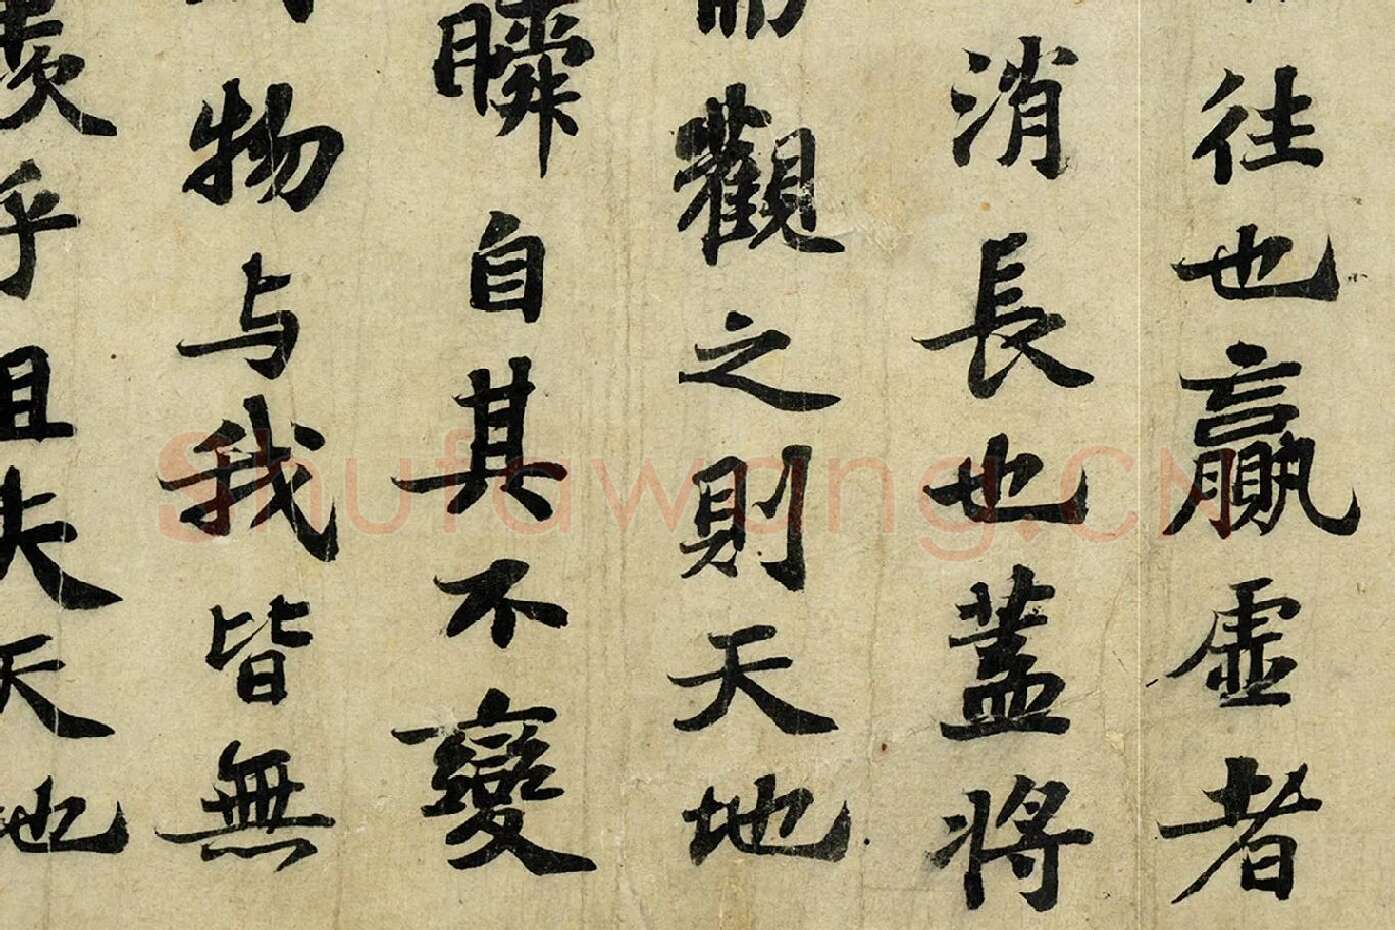 往也贏虛者
消長也蓋將
而觀之則天地
瞬自其不變
物与我皆無
羨乎且夫天地
Shufawang.CN